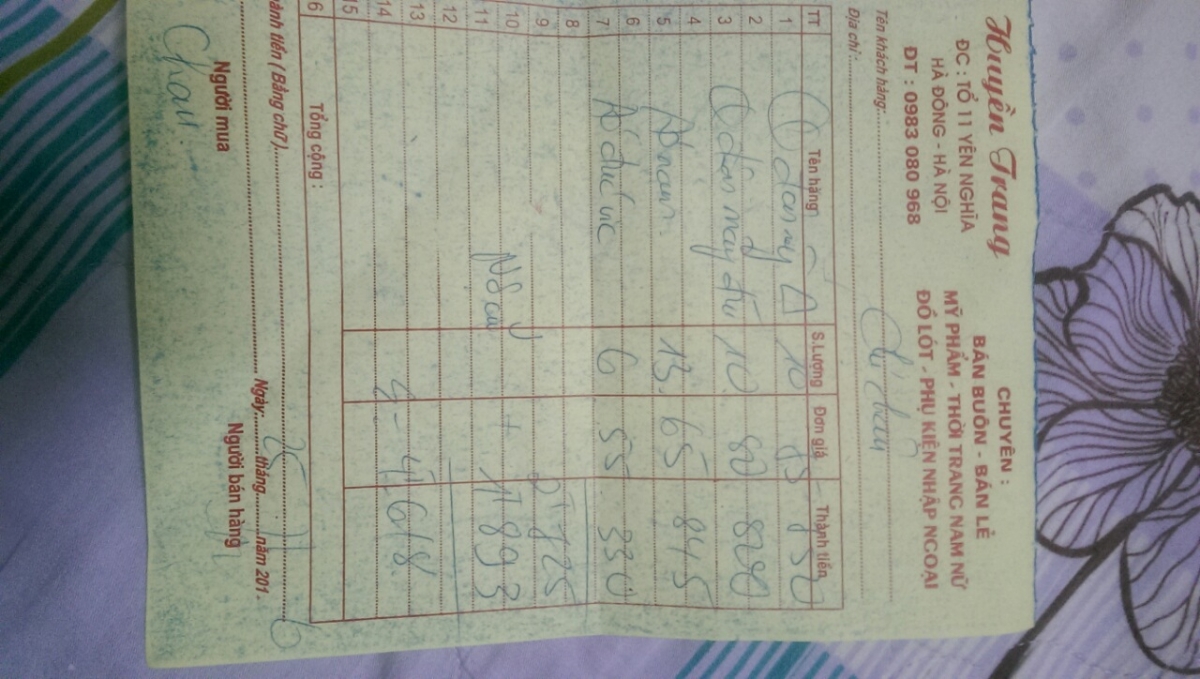 Huyền Trang
ĐC : TỔ 11 YÊN NGHĨA
HÀ ĐÔNG - HÀ NỘI
ĐT : 0983 080 968
CHUYÊN :
BÁN BUÔN - BÁN LẺ
MỸ PHẨM - THỜI TRANG NAM NỮ
ĐỒ LÓT - PHỤ KIỆN NHẬP NGOẠI
Tên khách hàng:
Địa chỉ :
TT Tên hàng S.Lượng Đơn giá Thành tiền
1 10 85 850
2
3 10 80 800
4
5 13 65 845
6
7 6 55 330
8
9 2T825
10
11 Nợ cũ + 1T893
12
13 4T618
14
15
6 Tổng cộng :
hành tiền (Bằng chữ)
Ngày: 25 tháng 11 năm 201 6
Người mua Người bán hàng
Chau